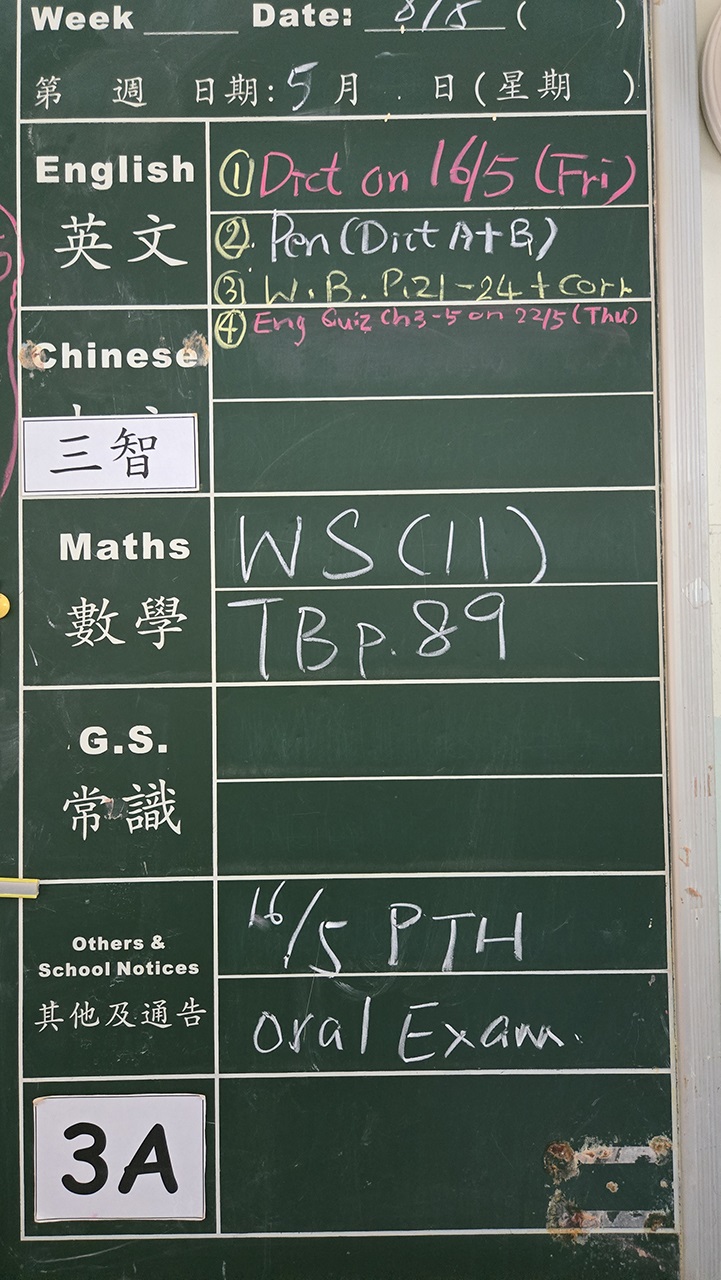 Week ____ Date: 8/5 ( )
第 週 日期: 5 月 日 (星期 )
English 英文
① Dict on 16/5 (Fri)
② Pen (Dict A+B)
③ W.B. P.21-24 + corr
④ Eng Quiz Ch3-5 on 22/5 (Thu)
Chinese
三智
Maths 數學
WS (11)
TB p.89
G.S.
常識
Others &
School Notices
其他及通告
16/5 PTH
Oral Exam.
3A